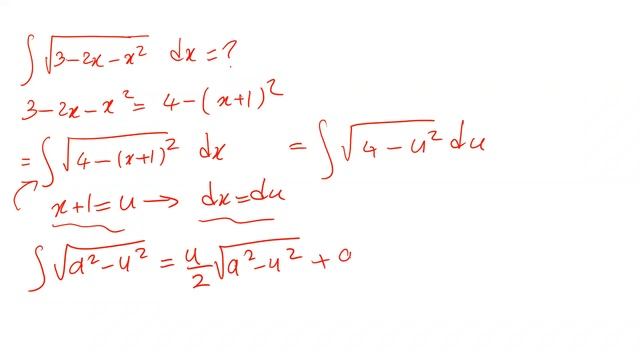 ∫√(3-2x-x²) dx = ?
3-2x-x² = 4-(x+1)²
= ∫√(4-(x+1)²) dx = ∫√(4-u²) du
x+1=u → dx=du
∫√(a²-u²) = u/2 √(a²-u²) +